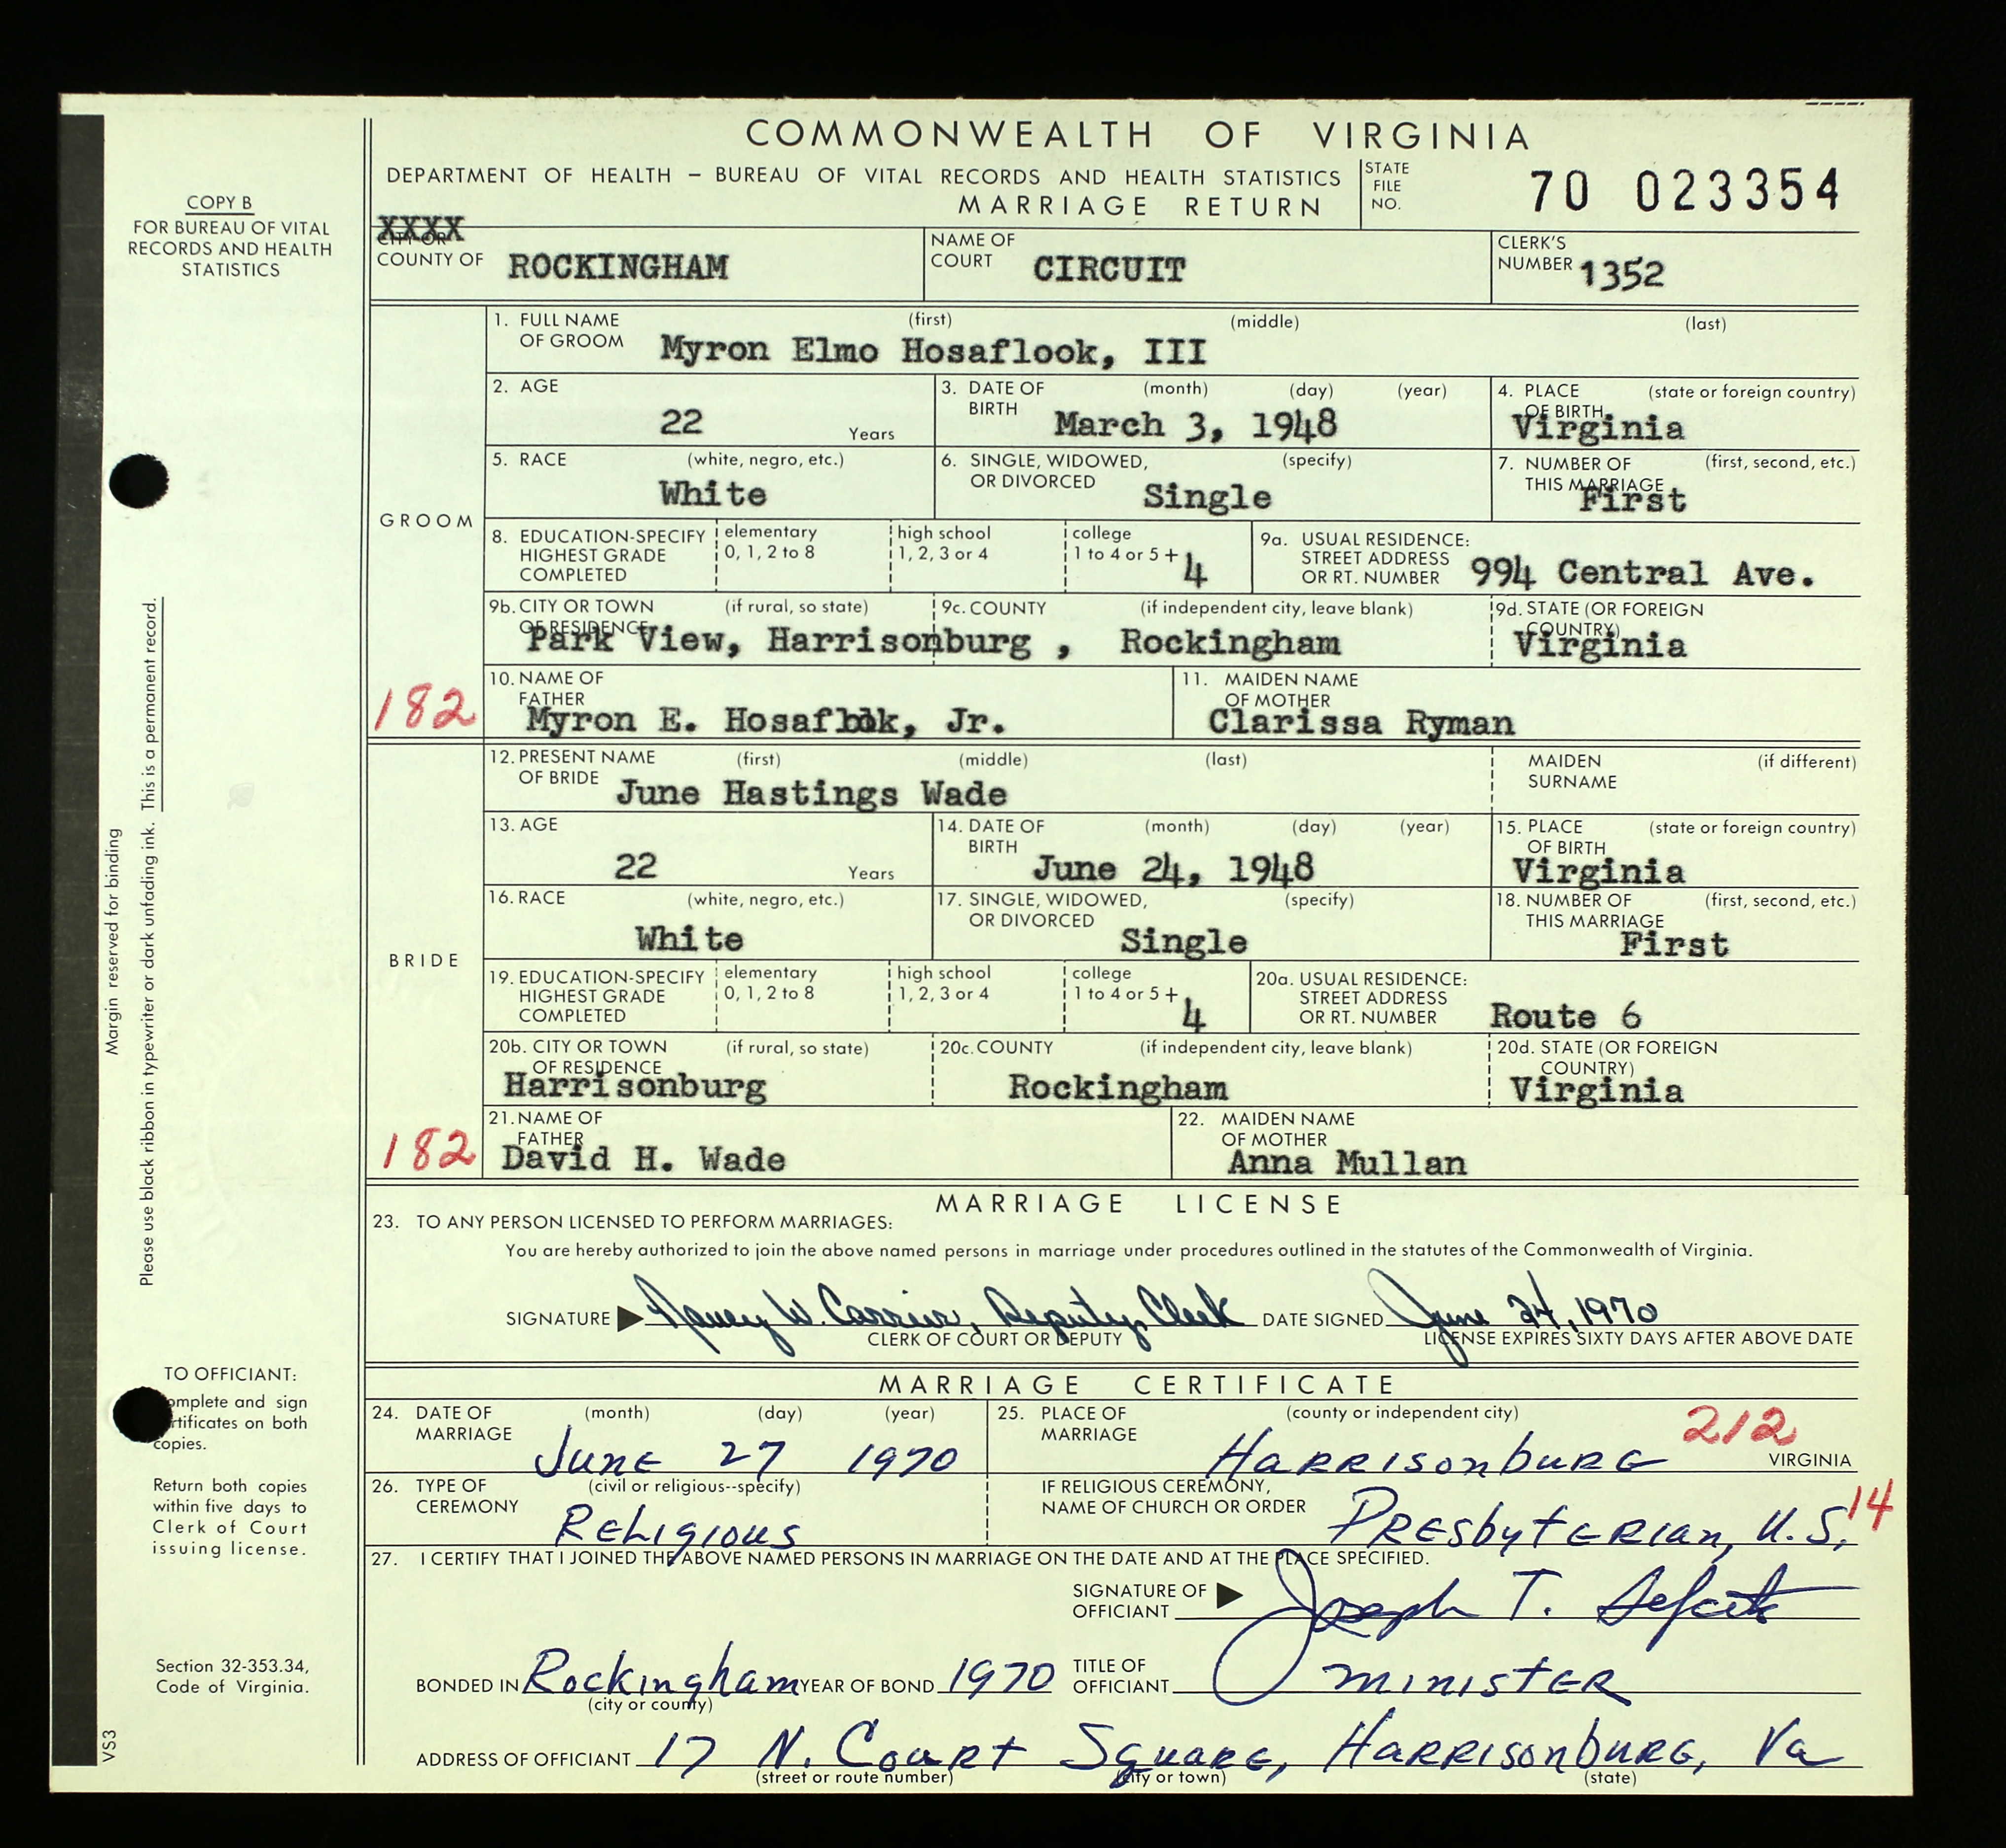 COMMONWEALTH OF VIRGINIA
DEPARTMENT OF HEALTH – BUREAU OF VITAL RECORDS AND HEALTH STATISTICS
MARRIAGE RETURN
STATE FILE NO. 70 023354
COPY B
FOR BUREAU OF VITAL
RECORDS AND HEALTH
STATISTICS
XXXX
CITY OR
COUNTY OF ROCKINGHAM
NAME OF COURT CIRCUIT
CLERK'S NUMBER 1352
GROOM
1. FULL NAME OF GROOM (first) (middle) (last)
Myron Elmo Hosaflook, III
2. AGE 22 Years
3. DATE OF BIRTH (month) (day) (year) March 3, 1948
4. PLACE OF BIRTH (state or foreign country) Virginia
5. RACE (white, negro, etc.) White
6. SINGLE, WIDOWED, OR DIVORCED (specify) Single
7. NUMBER OF THIS MARRIAGE (first, second, etc.) First
8. EDUCATION-SPECIFY HIGHEST GRADE COMPLETED
elementary 0, 1, 2 to 8
high school 1, 2, 3 or 4
college 1 to 4 or 5 + 4
9a. USUAL RESIDENCE: STREET ADDRESS OR RT. NUMBER 994 Central Ave.
9b. CITY OR TOWN OF RESIDENCE (if rural, so state) Park View, Harrisonburg ,
9c. COUNTY (if independent city, leave blank) Rockingham
9d. STATE (OR FOREIGN COUNTRY) Virginia
182
10. NAME OF FATHER Myron E. Hosaflook, Jr.
11. MAIDEN NAME OF MOTHER Clarissa Ryman
BRIDE
12. PRESENT NAME OF BRIDE (first) (middle) (last)
June Hastings Wade
MAIDEN SURNAME (if different)
13. AGE 22 Years
14. DATE OF BIRTH (month) (day) (year) June 24, 1948
15. PLACE OF BIRTH (state or foreign country) Virginia
16. RACE (white, negro, etc.) White
17. SINGLE, WIDOWED, OR DIVORCED (specify) Single
18. NUMBER OF THIS MARRIAGE (first, second, etc.) First
19. EDUCATION-SPECIFY HIGHEST GRADE COMPLETED
elementary 0, 1, 2 to 8
high school 1, 2, 3 or 4
college 1 to 4 or 5 + 4
20a. USUAL RESIDENCE: STREET ADDRESS OR RT. NUMBER Route 6
20b. CITY OR TOWN OF RESIDENCE (if rural, so state) Harrisonburg
20c. COUNTY (if independent city, leave blank) Rockingham
20d. STATE (OR FOREIGN COUNTRY) Virginia
182
21. NAME OF FATHER David H. Wade
22. MAIDEN NAME OF MOTHER Anna Mullan
MARRIAGE LICENSE
23. TO ANY PERSON LICENSED TO PERFORM MARRIAGES:
You are hereby authorized to join the above named persons in marriage under procedures outlined in the statutes of the Commonwealth of Virginia.
SIGNATURE Nancy W. Carrier, Deputy Clerk DATE SIGNED June 24, 1970
CLERK OF COURT OR DEPUTY
LICENSE EXPIRES SIXTY DAYS AFTER ABOVE DATE
MARRIAGE CERTIFICATE
24. DATE OF MARRIAGE (month) (day) (year) June 27 1970
25. PLACE OF MARRIAGE (county or independent city) Harrisonburg 212 VIRGINIA
26. TYPE OF CEREMONY (civil or religious--specify) Religious
IF RELIGIOUS CEREMONY, NAME OF CHURCH OR ORDER Presbyterian, U.S. 14
27. I CERTIFY THAT I JOINED THE ABOVE NAMED PERSONS IN MARRIAGE ON THE DATE AND AT THE PLACE SPECIFIED.
SIGNATURE OF OFFICIANT Joseph T.
BONDED IN Rockingham YEAR OF BOND 1970
(city or county)
TITLE OF OFFICIANT Minister
ADDRESS OF OFFICIANT 17 N. Court Square, Harrisonburg, Va
(street or route number) (city or town) (state)
Margin reserved for binding
Please use black ribbon in typewriter or dark unfading ink. This is a permanent record.
TO OFFICIANT:
omplete and sign
rtificates on both
copies.
Return both copies
within five days to
Clerk of Court
issuing license.
Section 32-353.34,
Code of Virginia.
VS3